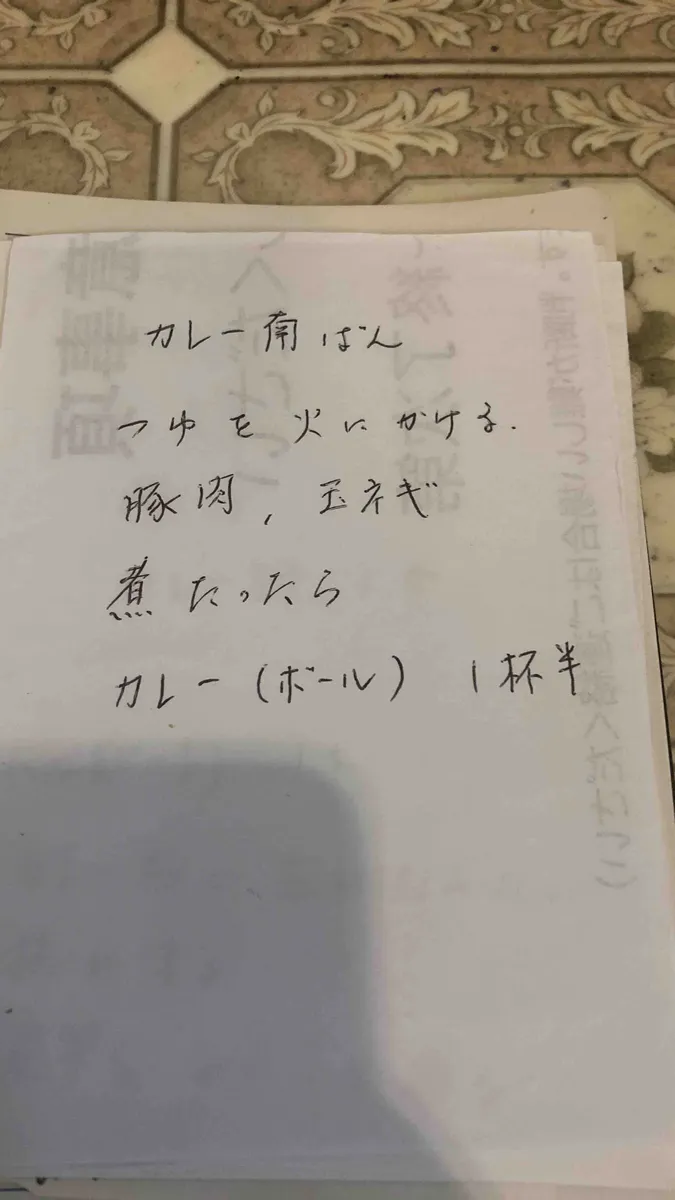 カレー南ばん
つゆを火にかける.
豚肉, 玉ネギ
煮たったら
カレー(ボール) 1杯半